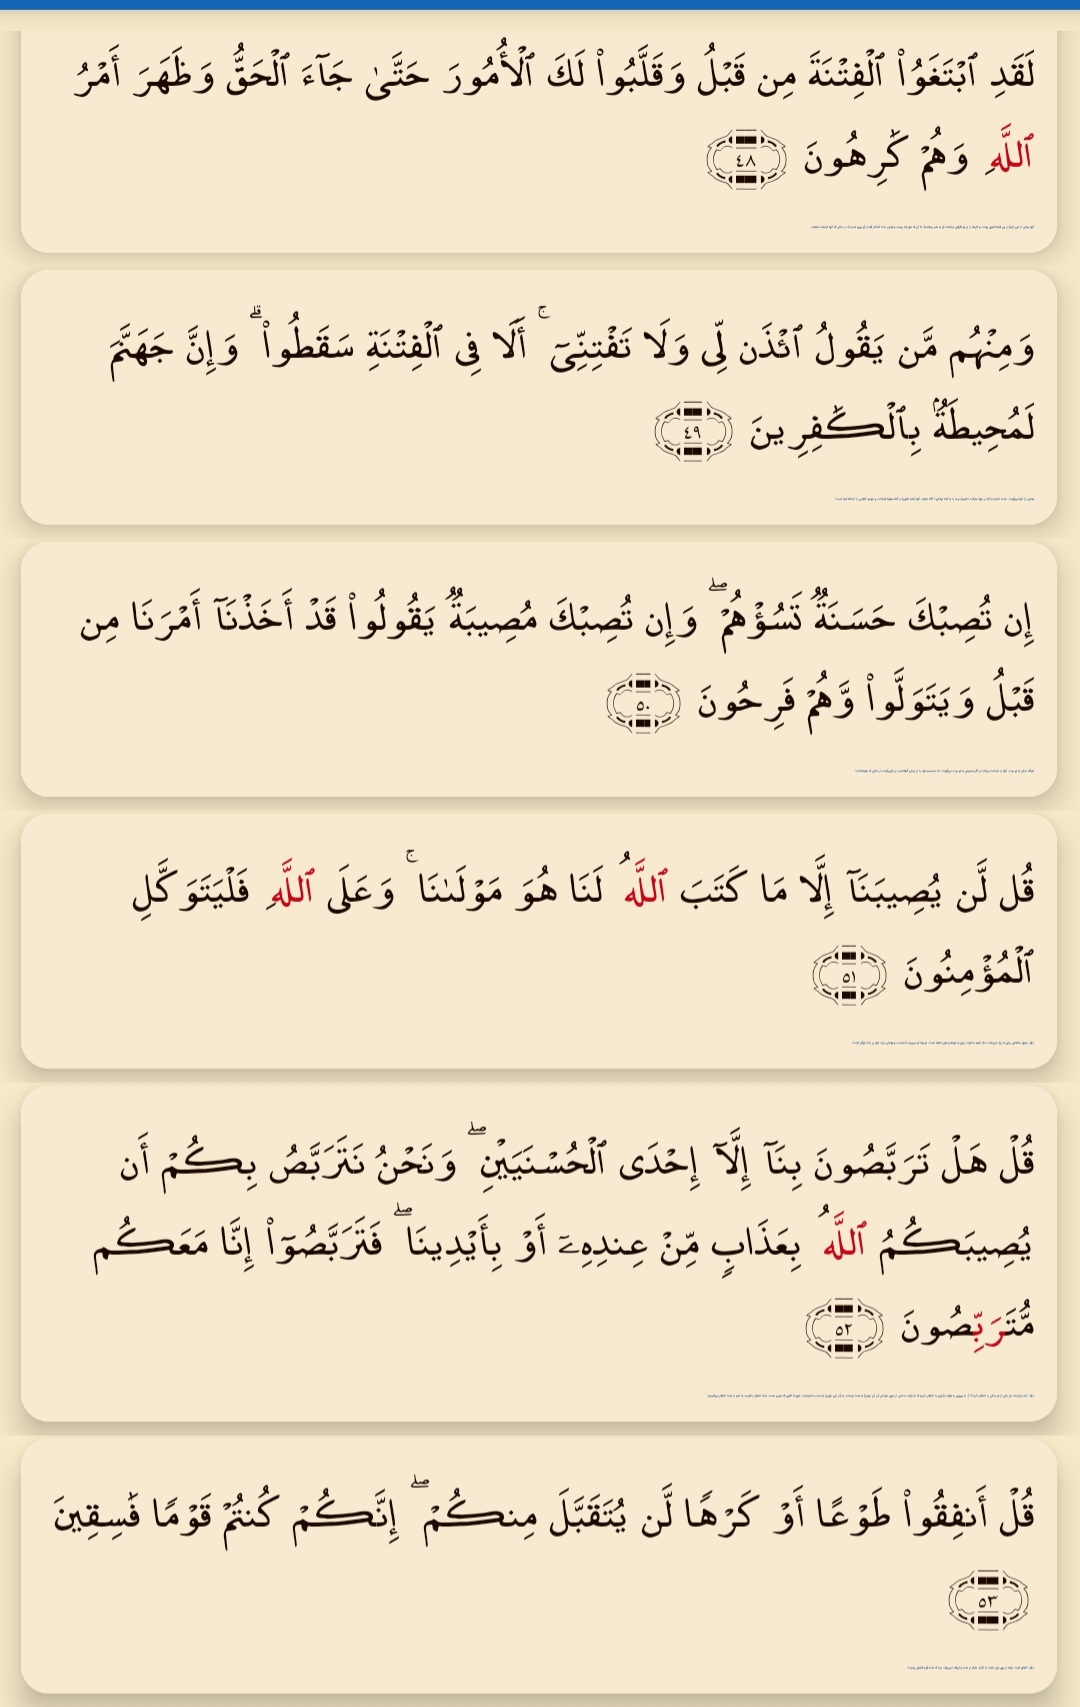 لَقَدِ ٱبْتَغَوُا۟ ٱلْفِتْنَةَ مِن قَبْلُ وَقَلَّبُوا۟ لَكَ ٱلْأُمُورَ حَتَّىٰ جَآءَ ٱلْحَقُّ وَظَهَرَ أَمْرُ
ٱللَّهِ وَهُمْ كَٰرِهُونَ ٤٨
وَمِنْهُم مَّن يَقُولُ ٱئْذَن لِّى وَلَا تَفْتِنِّىٓ ۚ أَلَا فِى ٱلْفِتْنَةِ سَقَطُوا۟ ۗ وَإِنَّ جَهَنَّمَ
لَمُحِيطَةٌۢ بِٱلْكَٰفِرِينَ ٤٩
إِن تُصِبْكَ حَسَنَةٌ تَسُؤْهُمْ ۖ وَإِن تُصِبْكَ مُصِيبَةٌ يَقُولُوا۟ قَدْ أَخَذْنَآ أَمْرَنَا مِن
قَبْلُ وَيَتَوَلَّوا۟ وَّهُمْ فَرِحُونَ ٥٠
قُل لَّن يُصِيبَنَآ إِلَّا مَا كَتَبَ ٱللَّهُ لَنَا هُوَ مَوْلَىٰنَا ۚ وَعَلَى ٱللَّهِ فَلْيَتَوَكَّلِ
ٱلْمُؤْمِنُونَ ٥١
قُلْ هَلْ تَرَبَّصُونَ بِنَآ إِلَّآ إِحْدَى ٱلْحُسْنَيَيْنِ ۖ وَنَحْنُ نَتَرَبَّصُ بِكُمْ أَن
يُصِيبَكُمُ ٱللَّهُ بِعَذَابٍ مِّنْ عِندِهِۦٓ أَوْ بِأَيْدِينَا ۖ فَتَرَبَّصُوٓا۟ إِنَّا مَعَكُم
مُّتَرَبِّصُونَ ٥٢
قُلْ أَنفِقُوا۟ طَوْعًا أَوْ كَرْهًا لَّن يُتَقَبَّلَ مِنكُمْ ۖ إِنَّكُمْ كُنتُمْ قَوْمًا فَٰسِقِينَ
٥٣